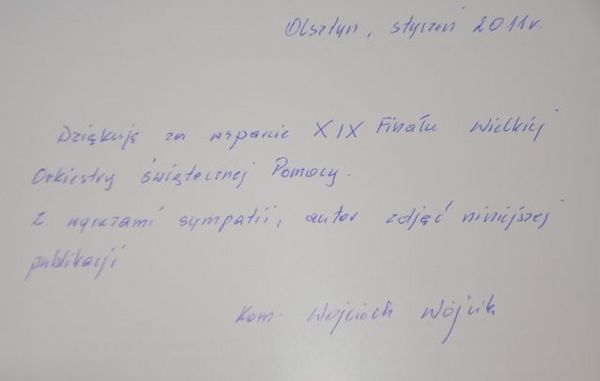 Olsztyn, styczeń 2011r.
Dziękuję za wsparcie XIX Finału Wielkiej
Orkiestry Świątecznej Pomocy.
Z wyrazami sympatii, autor zdjęć niniejszej
publikacji
kom. Wojciech Wójcik